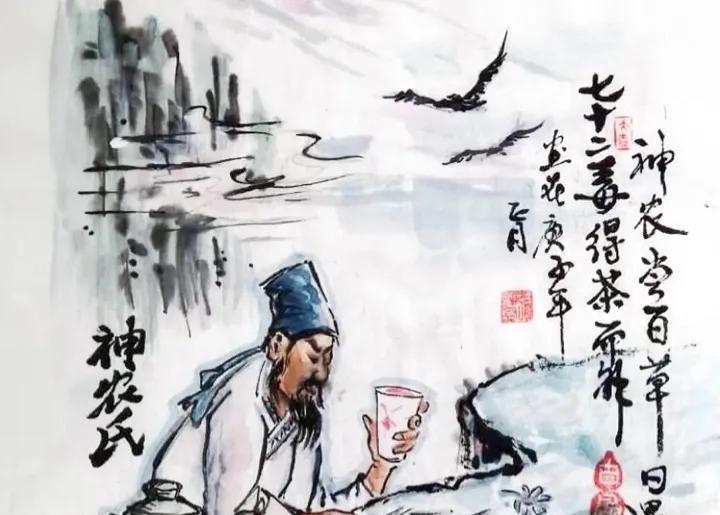 神农尝百草日遇
七十二毒得茶而解
画于庚子年
正月
神农氏